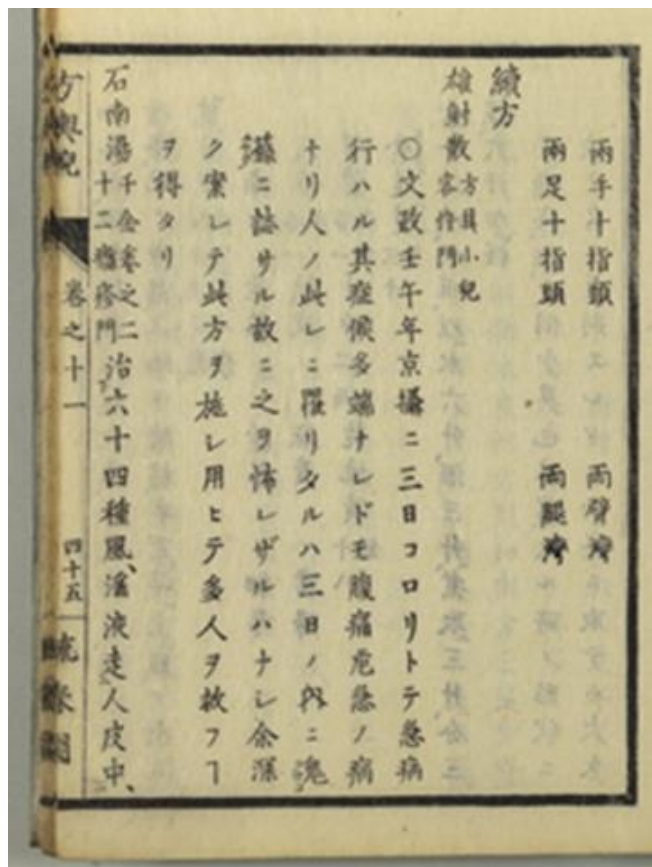 兩手十指頭 兩臂灣
兩足十指頭 兩腿灣
續方
雄射散 方具小兒客忤門
〇文政壬午年京攝ニ三日コロリトテ急病
行ハル其症候多端ナレドモ腹痛危急ノ病
ナリ人ノ此レニ罹リタルハ三日ノ内ニ鬼
籙ニ誌サル故ニ之ヲ怖レザルハナシ余深
ク案シテ此方ヲ施シ用ヒテ多人ヲ救フヿ
ヲ得タリ
石南湯 千金卷之二十二癮疹門 治六十四種風、淫液走人皮中、
方輿輗
卷之十一
四十五